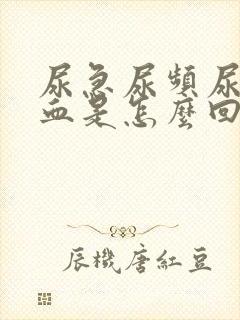 尿急尿頻尿
血是怎麼回
辰機唐紅豆